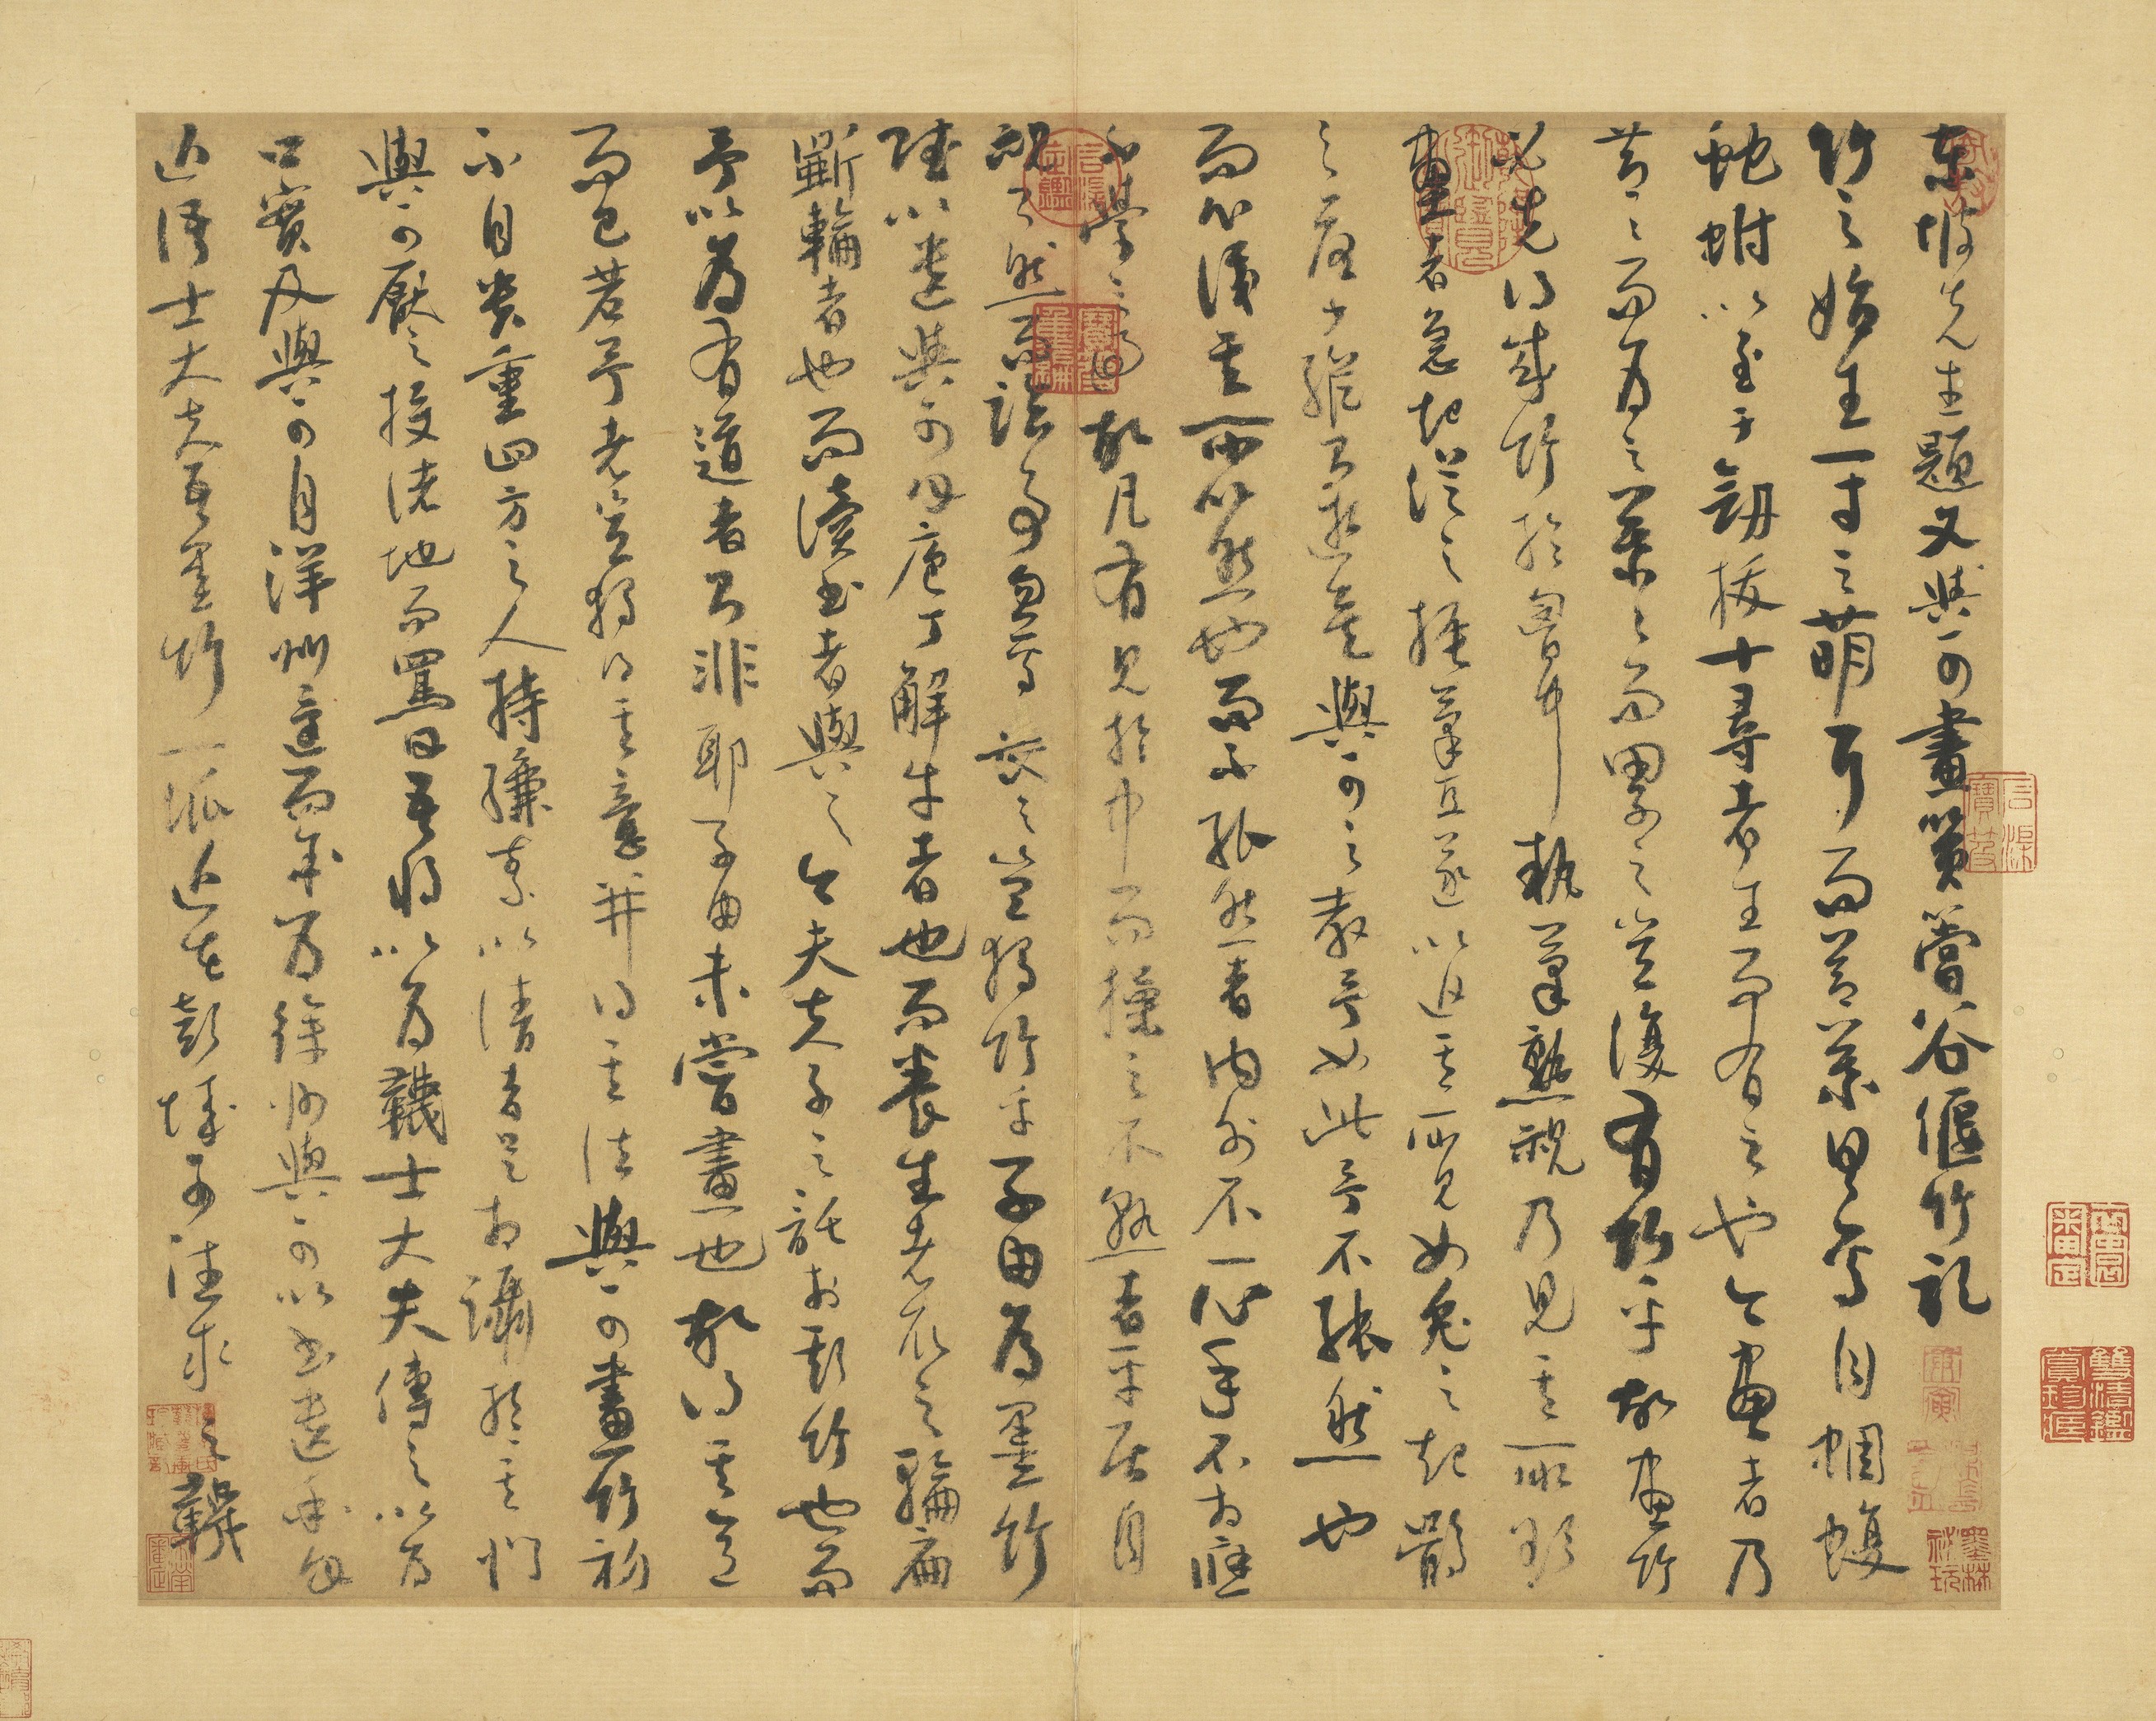 東坡先生題文與可畫篔簹谷偃竹記
竹之始生一寸之萌耳而節葉具焉自蜩蝮
蛇蚹以至于劒拔十尋者生而有之也今畫者乃
節〻而為之葉〻而累之豈復有竹乎故畫竹
必先得成竹於胷中執筆熟視乃見其所欲
畫者急起從之振筆直遂以追其所見如兔之起鶻
之落少縱則逝矣與可之教予如此予不能然也
而心識其所以然也而不能然者內外不一心手不相應
不學之過也故凡有見於中而操之不熟者平居自
視了然而臨事忽焉喪之豈獨竹乎子由為墨竹
賦以遺與可曰庖丁解牛者也而養生者取之輪扁
斵輪者也而讀書者與之今夫夫子之託於斯竹也而
予以為有道者則非耶子由未嘗畫也故得其意
而已若予者豈獨得其意并得其法與可畫竹初
不自貴重四方之人持縑素以請者足相躡於其門
與可厭之投諸地而罵曰吾將以為韈士大夫傳之以為
口實及與可自洋州還而余為徐州與可以書遺余曰
近語士大夫吾墨竹一派近在彭城可往求之韈
乾隆御覽之寶
石渠寶笈
石渠定鑑
寶笈重編
墨林祕玩